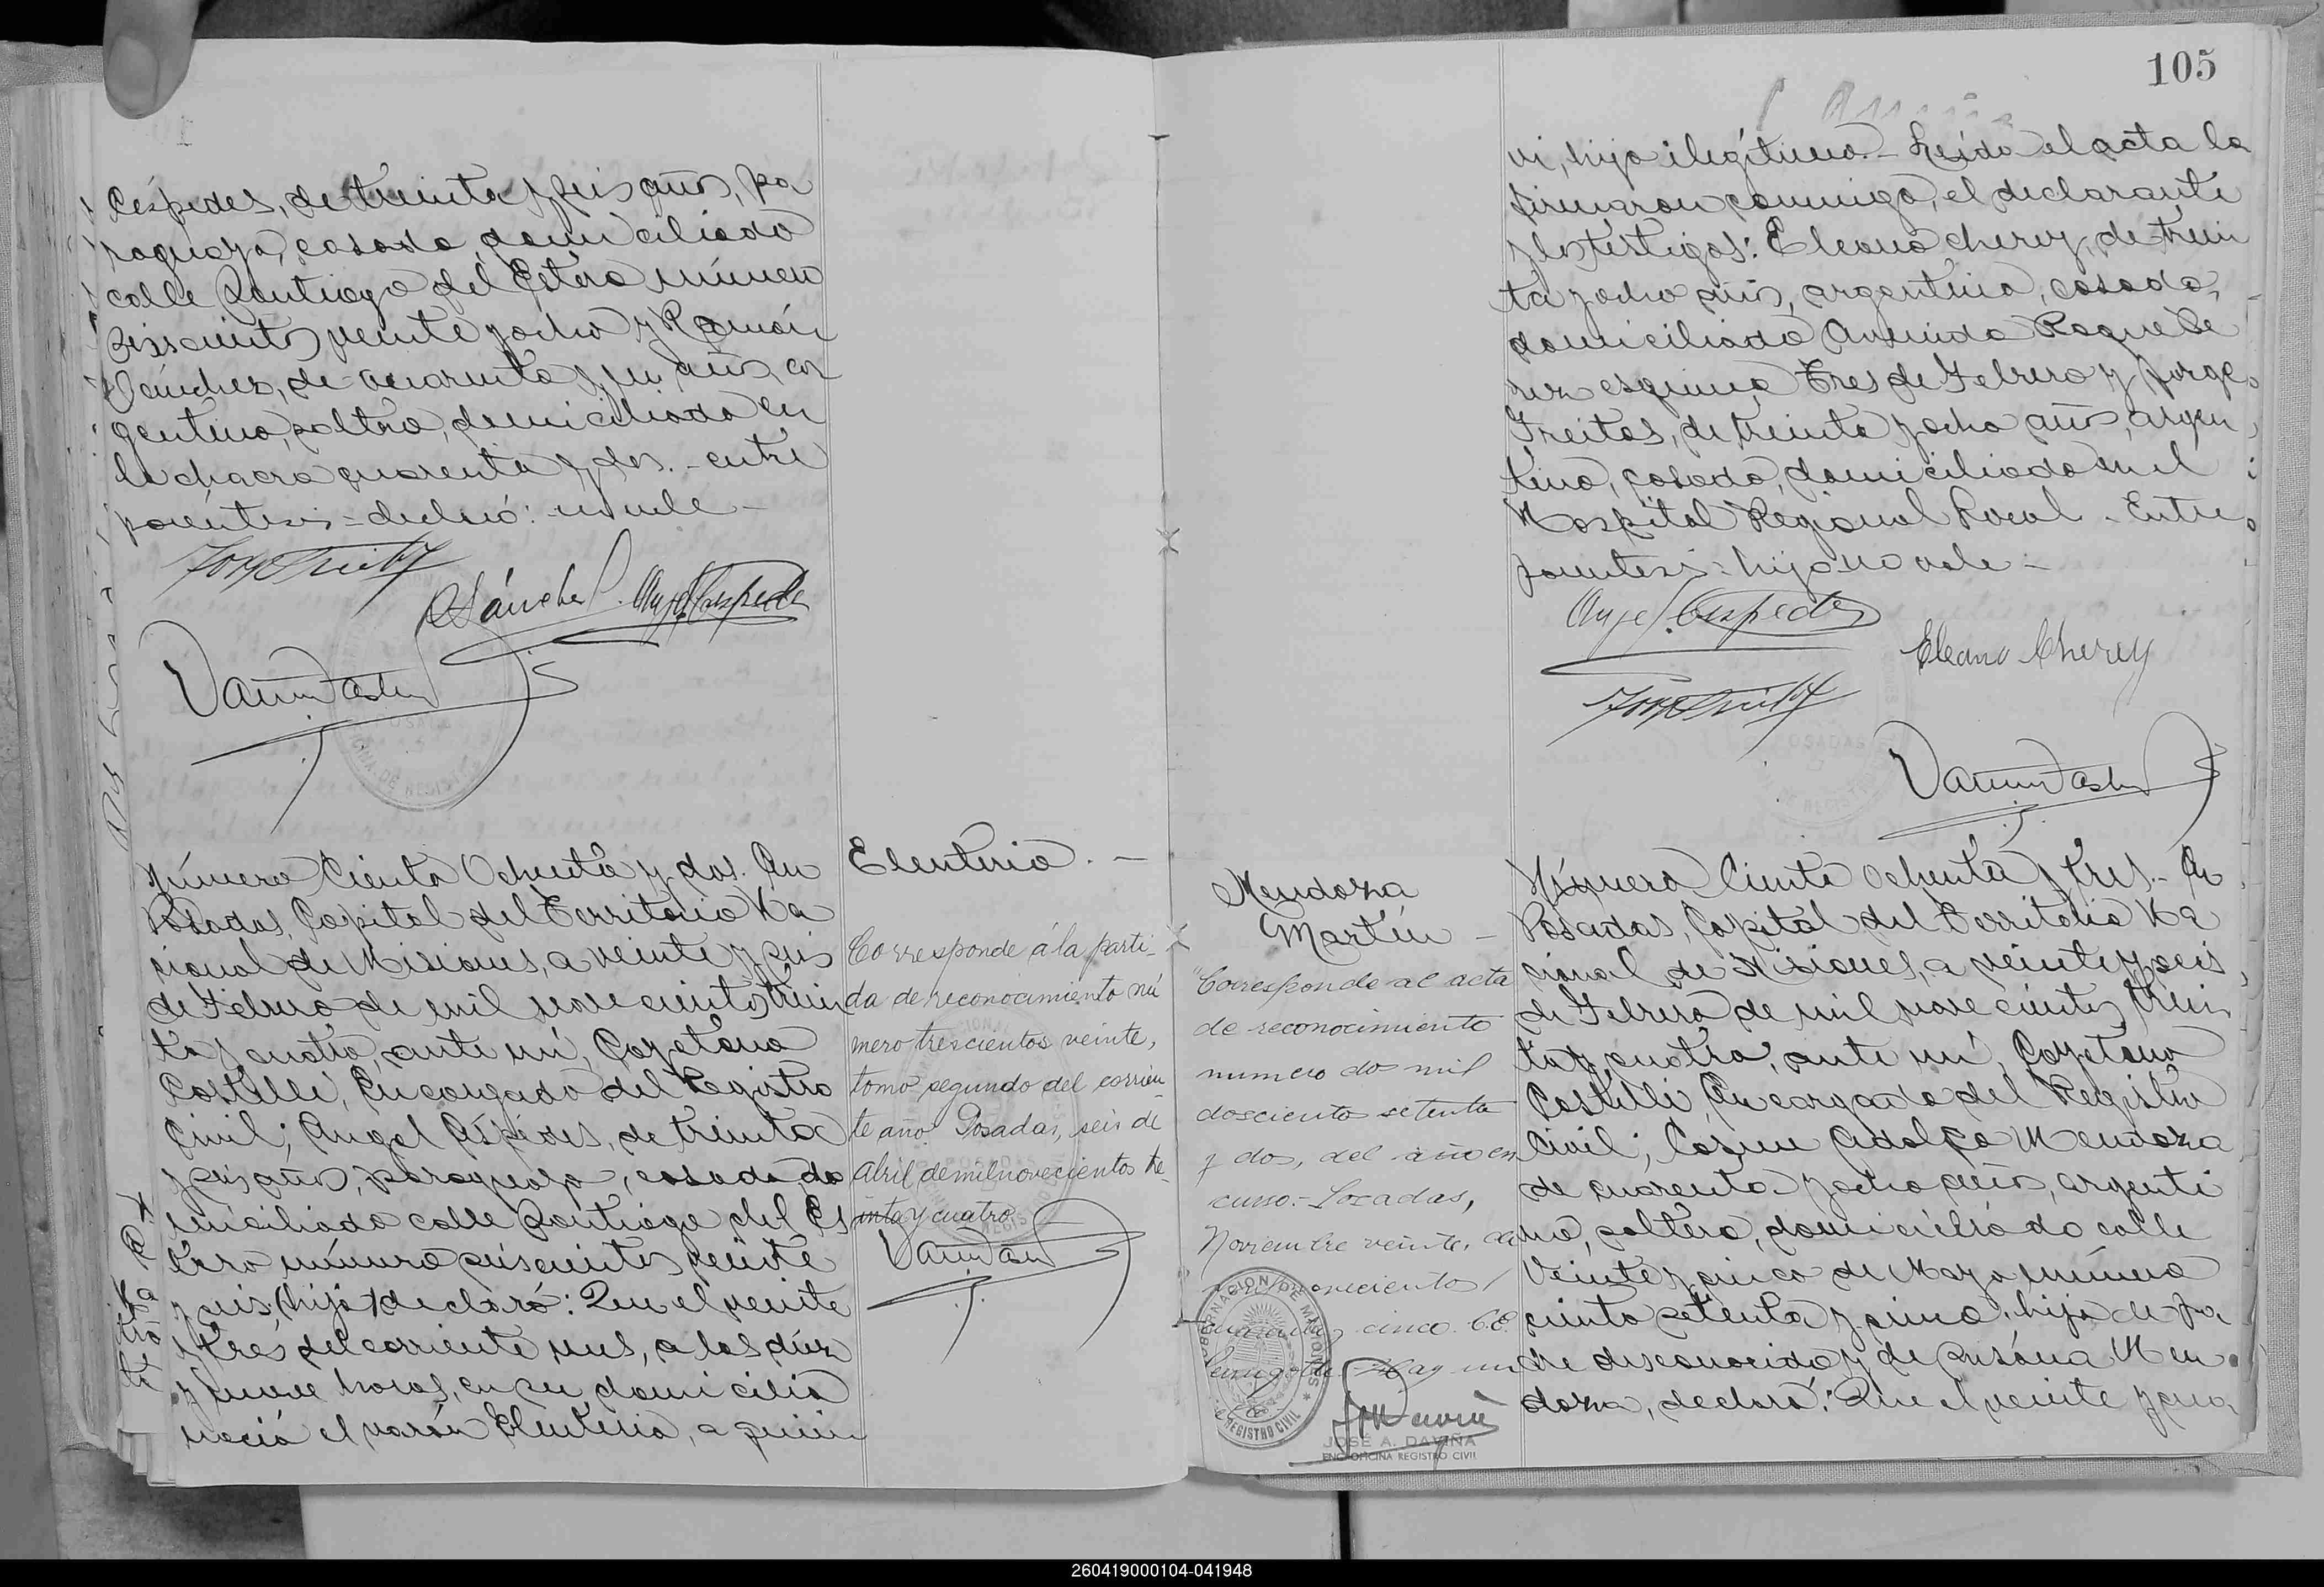 Céspedes, de treinta y seis años, pa
raguayo, casado, domiciliado
calle Santiago del Estero número
seiscientos veinte y ocho y Ramón
Sánchez, de cuarenta y un años, ar
gentino, soltero, domiciliado en
la chacra cuarenta y dos. - entre
paréntesis = declaró: no vale -
Sánchez Angel Céspedes
Número Ciento Ochenta y dos. En
Posadas, Capital del Territorio Na
cional de Misiones, a veinte y seis
de Febrero de mil novecientos trein
ta y cuatro, ante mí, Cayetano
Castelli, Encargado del Registro
Civil; Angel Céspedes, de treinta
y seis años, paraguayo, casado, do
miciliado calle Santiago del Es
tero número seiscientos veinte
y seis, (hijo) declaró: Que el veinte
y tres del corriente mes, a las diez
y nueve horas, en su domicilio
nació el varón Eleuterio, a quien
Eleuterio. -
Corresponde á la parti-
da de reconocimiento nú
mero trescientos veinte,
tomo segundo del corrien
te año. Posadas, seis de
Abril de mil novecientos tre-
inta y cuatro
105
vi, hijo ilegítimo. - Leída el acta la
firmaron conmigo, el declarante
y los testigos: Eleano Cherey, de trein
ta y ocho años, argentino, casado,
domiciliado Avenida Roque Sa
esquina Tres de Febrero y Jorge
Freitas, de treinta y ocho años, argen
tino, casado, domiciliado en el
Hospital Regional local. - Entre
paréntesis: hijo no vale -
Angel Céspedes
Eleano Cherey
Mendoza
Martín -
"Corresponde al acta
de reconocimiento
numero dos mil
dosciento setenta
y dos, del año en
curso.- Posadas,
Noviembre veinte, de
novecientos
cuarenta y cinco. C.E.
Hay un
GOBERNACION DE MISIONES
REGISTRO CIVIL
JOSÉ A. DAVIÑA
ENC. OFICINA REGISTRO CIVIL
Número Ciento ochenta y tres. - En
Posadas, Capital del Territorio Na
cional de Misiones, a veinte y seis
de Febrero de mil novecientos trein
ta y cuatro, ante mí, Cayetano
Castelli, Encargado del Registro
Civil; Cosme Adolfo Mendoza
de cuarenta y ocho años, argenti
no, soltero, domiciliado calle
Veinte y cinco de Mayo número
ciento setenta y cinco, hijo de pa
dre desconocido y de Mendoza
doza, declaró: Que el veinte y
260419000104-041948